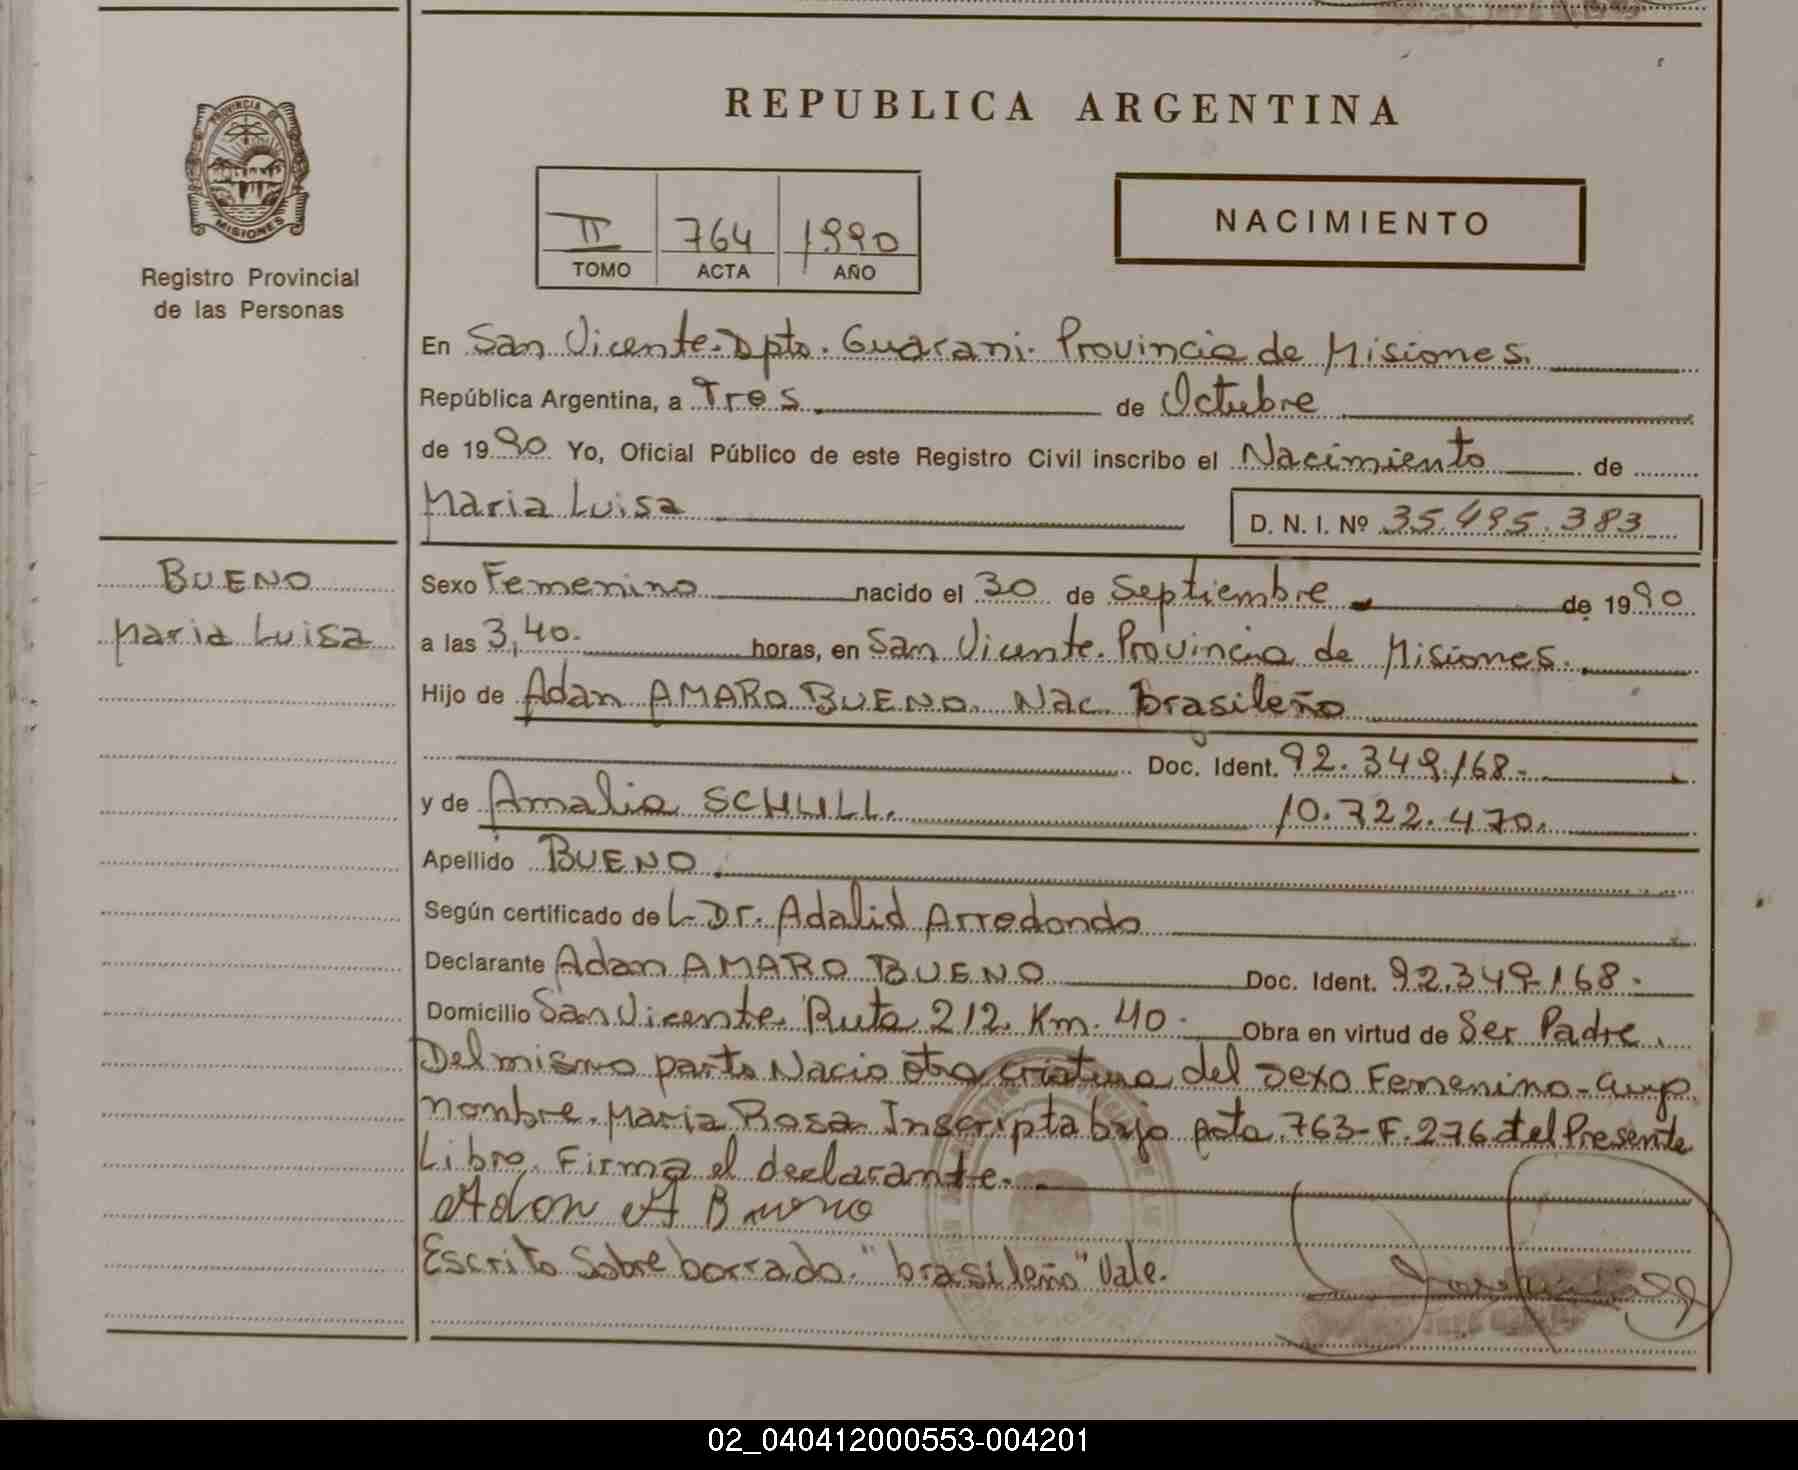 REPUBLICA ARGENTINA
PROVINCIA DE
MISIONES
Registro Provincial
de las Personas
II 764 1990
TOMO ACTA AÑO
NACIMIENTO
En San Vicente. Dpto. Guarani. Provincia de Misiones.
República Argentina, a Tres de Octubre
de 1990 Yo, Oficial Público de este Registro Civil inscribo el Nacimiento de
Maria Luisa D. N. I. Nº 35.495.383
BUENO
Maria Luisa
Sexo Femenino nacido el 30 de Septiembre de 1990
a las 3,40. horas, en San Vicente. Provincia de Misiones.
Hijo de Adan AMARO BUENO. Nac. brasileño
Doc. Ident. 92.349.168.
y de Amalia SCHULL. 10.722.470.
Apellido BUENO.
Según certificado de L. Dr. Adalid Arredondo
Declarante Adan AMARO BUENO Doc. Ident. 92.349.168.
Domicilio San Vicente Ruta 212. Km. 40. Obra en virtud de Ser Padre.
Del mismo parto Nacio otra criatura del sexo Femenino-Cuyo
nombre. Maria Rosa Inscripta bajo acta. 763-F. 276 del Presente
Libro. Firma el declarante.
Adan A Bueno
Escrito Sobre borrado. "brasileño" Vale.
02_040412000553-004201